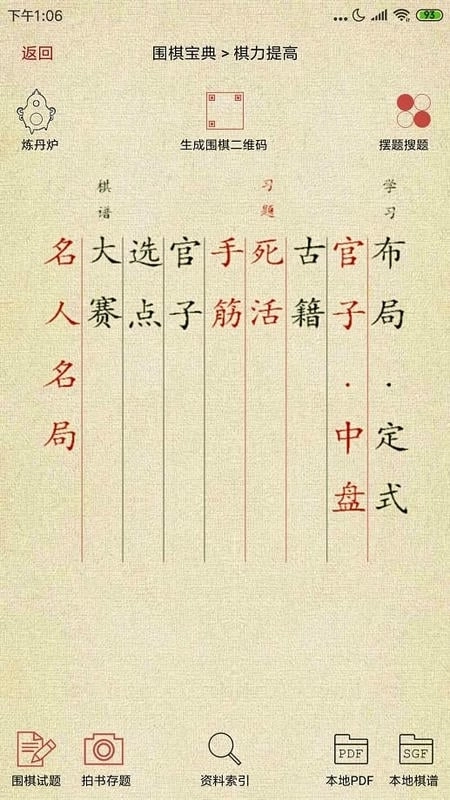 下午1:06
93
返回
围棋宝典 > 棋力提高
炼丹炉
生成围棋二维码
摆题搜题
学习
习题
棋谱
布局·定式
官子·中盘
古籍
死活
手筋
官子
选点
大赛
名人名局
围棋试题
拍书存题
资料索引
PDF
本地PDF
SGF
本地棋谱